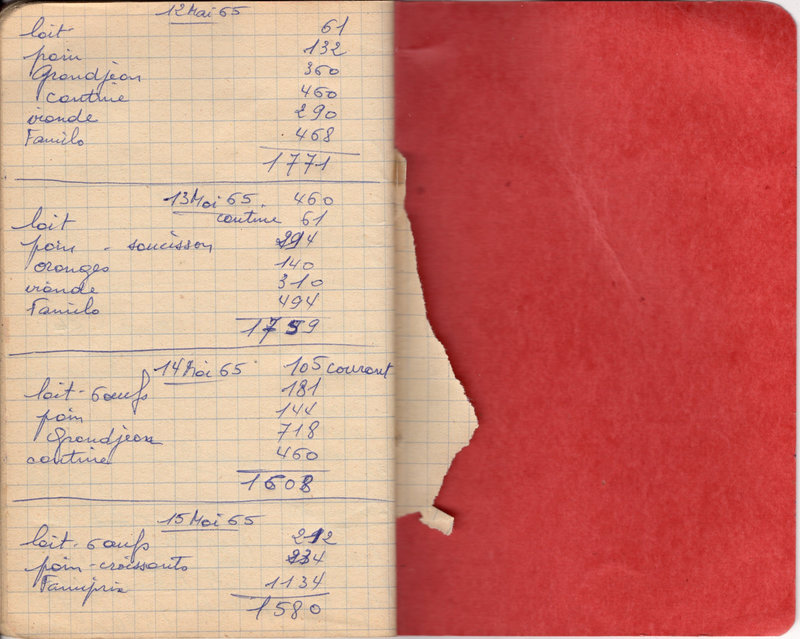 12 Mai 65
lait 61
pain 132
Grandjean 360
cantine 460
viande 290
Familo 468
1771
13 Mai 65. 460
lait cantine 61
pain - saucisson 294
oranges 140
viande 310
Familo 494
1759
14 Mai 65 105 courant
lait - 6 œufs 181
pain 144
Grandjean 718
cantine 460
1608
15 Mai 65
lait - 6 œufs 212
pain - croissants 234
Famiprix 1134
1580